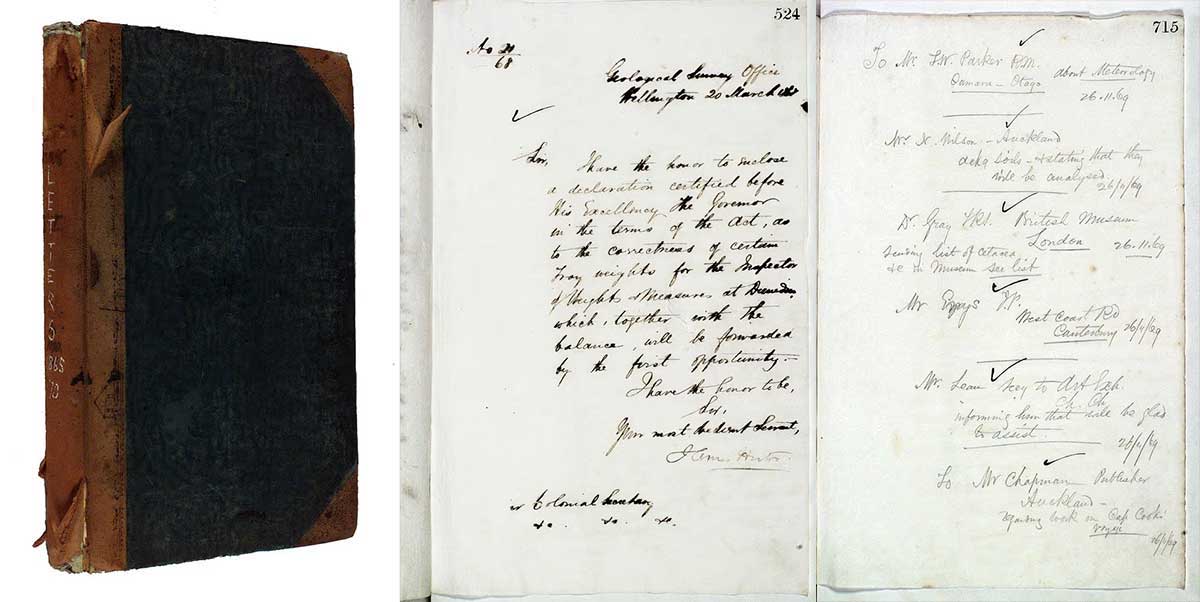 LETTERS
1865
70
524
No 20/68
Geological Survey Office
Wellington 20 March 1868
Sir,
I have the honor to enclose
a declaration certified before
His Excellency the Governor
in the terms of the Act, as
to the correctness of certain
Troy weights for the Inspector
of Weights & Measures at Dunedin
which, together with the
balance, will be forwarded
by the first opportunity.
I have the honor to be,
Sir,
Your most obedient Servant,
Colonial Secretary
&c. &c. &c.
715
To Mr. Parker R.M.
Oamaru – Otago
about Meteorology
26.11.69
Mr. Wilson – Auckland
soils – stating that they
will be analysed
26/11/69
Dr. Gray FRS. British Museum
London
26.11.69
sending list of Cetacea
&c in Museum see list
Mr
West Coast Rd
Canterbury 26/11/69
Mr. Lean key to Art Exh.
Ch. Ch.
informing him that will be glad
to assist.
26/11/69
To Mr Chapman Publisher
Auckland –
regarding work on Cap Cook's
voyage
26/11/69